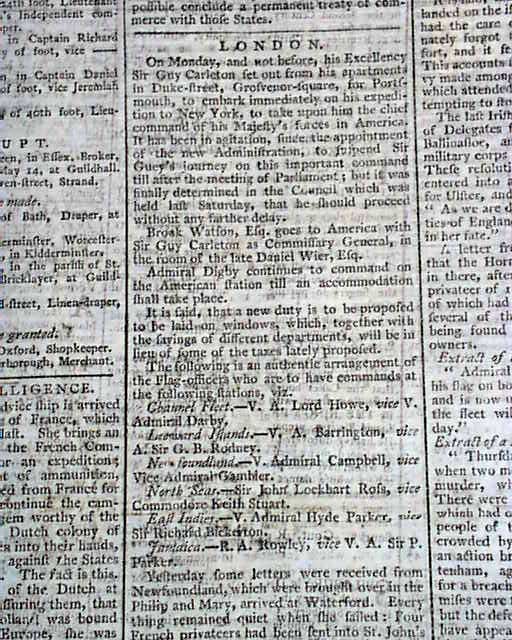 24th foot, Lieutenant
's Independent com-
per.
in Captain Richard
y of foot, vice
n, in Captain Daniel
of foot, vice Jeremiah
of 40th foot, Lieu-
UPT.
een, in Essex, Broker,
May 14, at Guildhall.
en-street, Strand.
made.
of Bath, Draper, at
erminster, Worcester-
, in Kidderminster.
, in the parish of St.
Bricklayer, at Guild-
d-street, Linen-draper,
granted.
Oxford, Shopkeeper.
rborough, Merchant.
LLIGENCE.
dvice ship is arrived
of France, which
last. She brings an
the French Com-
or an expedition;
t of ammunition,
ed from France for
continue the cam-
em worthy of the
Dutch colony of
s into their hands,
against the States
The fact is this.
of the Dutch at
ssuring them, that
ollan was bound
Europe, she was
possible conclude a permanent treaty of com-
merce with those States.
LONDON.
On Monday, and not before, his Excellency
Sir Guy Carleton set out from his apartments
in Duke-street, Grosvenor-square, for Ports-
mouth, to embark immediately on his expedi-
tion to New York, to take upon him the chief
command of his Majesty's forces in America.
It has been in agitation, since the appointment
of the new Administration, to suspend Sir
Guy's journey on this important command
till after the meeting of Parliament; but it was
finally determined in the Council which was
held last Saturday, that he should proceed
without any farther delay.
Brook Watson, Esq. goes to America with
Sir Guy Carleton as Commissary General, in
the room of the late Daniel Wier, Esq.
Admiral Digby continues to command on
the American station till an accommodation
shall take place.
It is said, that a new duty is to be proposed
to be laid on windows, which, together with
the savings of different departments, will be in
lieu of some of the taxes lately proposed.
The following is an authentic arrangement of
the Flag-officers who are to have commands at
the following stations, viz.
Channel Fleet.—V. A. Lord Howe, vice V.
Admiral Darby.
Leeward Islands.—V. A. Barrington, vice
A. Sir G. B. Rodney.
Newfoundland.—V. Admiral Campbell, vice
Vice Admiral Gambier.
North Seas.—Sir John Lockhart Ross, vice
Commodore Keith Stuart.
East Indies.—V. Admiral Hyde Parker, vice
Sir Richard Bickerton.
Jamaica.—R. A. Rowley, vice V. A. Sir P.
Parker.
Yesterday some letters were received from
Newfoundland, which were brought over in the
Philip and Mary, arrived at Waterford. Every
thing remained quiet when she sailed: Four
French privateers had been sent into St. John's
landed on the
had the care
nately forgot
fort, and it
This accounts
ry made among
which attended
tempting to
The last Irish
of Delegates
Ballinasloe, an
military corps
These resolut
entered into a
for Ulster, and
" As we are d
ties of England
in her fate."
Letter fr
that the Horn
in there, after
privateer of
of which had
several of th
being found
owners.
Extract of
" Admiral
his flag on bo
and is now
the fleet will
day."
Extract of a
" Thursd
when two m
murder, wh
There were
which had
people of t
crowded by
an action br
tenham, ag
for a breach
mises were
but the defe